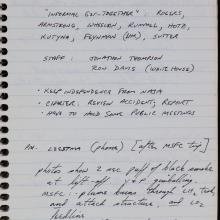 "INFORMAL GET-TOGETHER" : ROGERS,
ARMSTRONG, WHEELON, RUMMEL, HOTZ,
KUTYNA, FEYNMAN (HM), SUTTER
STAFF : JONATHAN THOMPSON
RON DAVIS (WHITE HOUSE)
• KEEP INDEPENDENCE FROM NASA
• CHARTER: REVIEW ACCIDENT, REPORT
• HAVE TO HOLD SOME PUBLIC MEETINGS
PM. (phone) [after MSFC trip]
photos show 2 sec puff of black smoke
at left off,
MSFC : plume burns through tank
and attach structure, and LO2